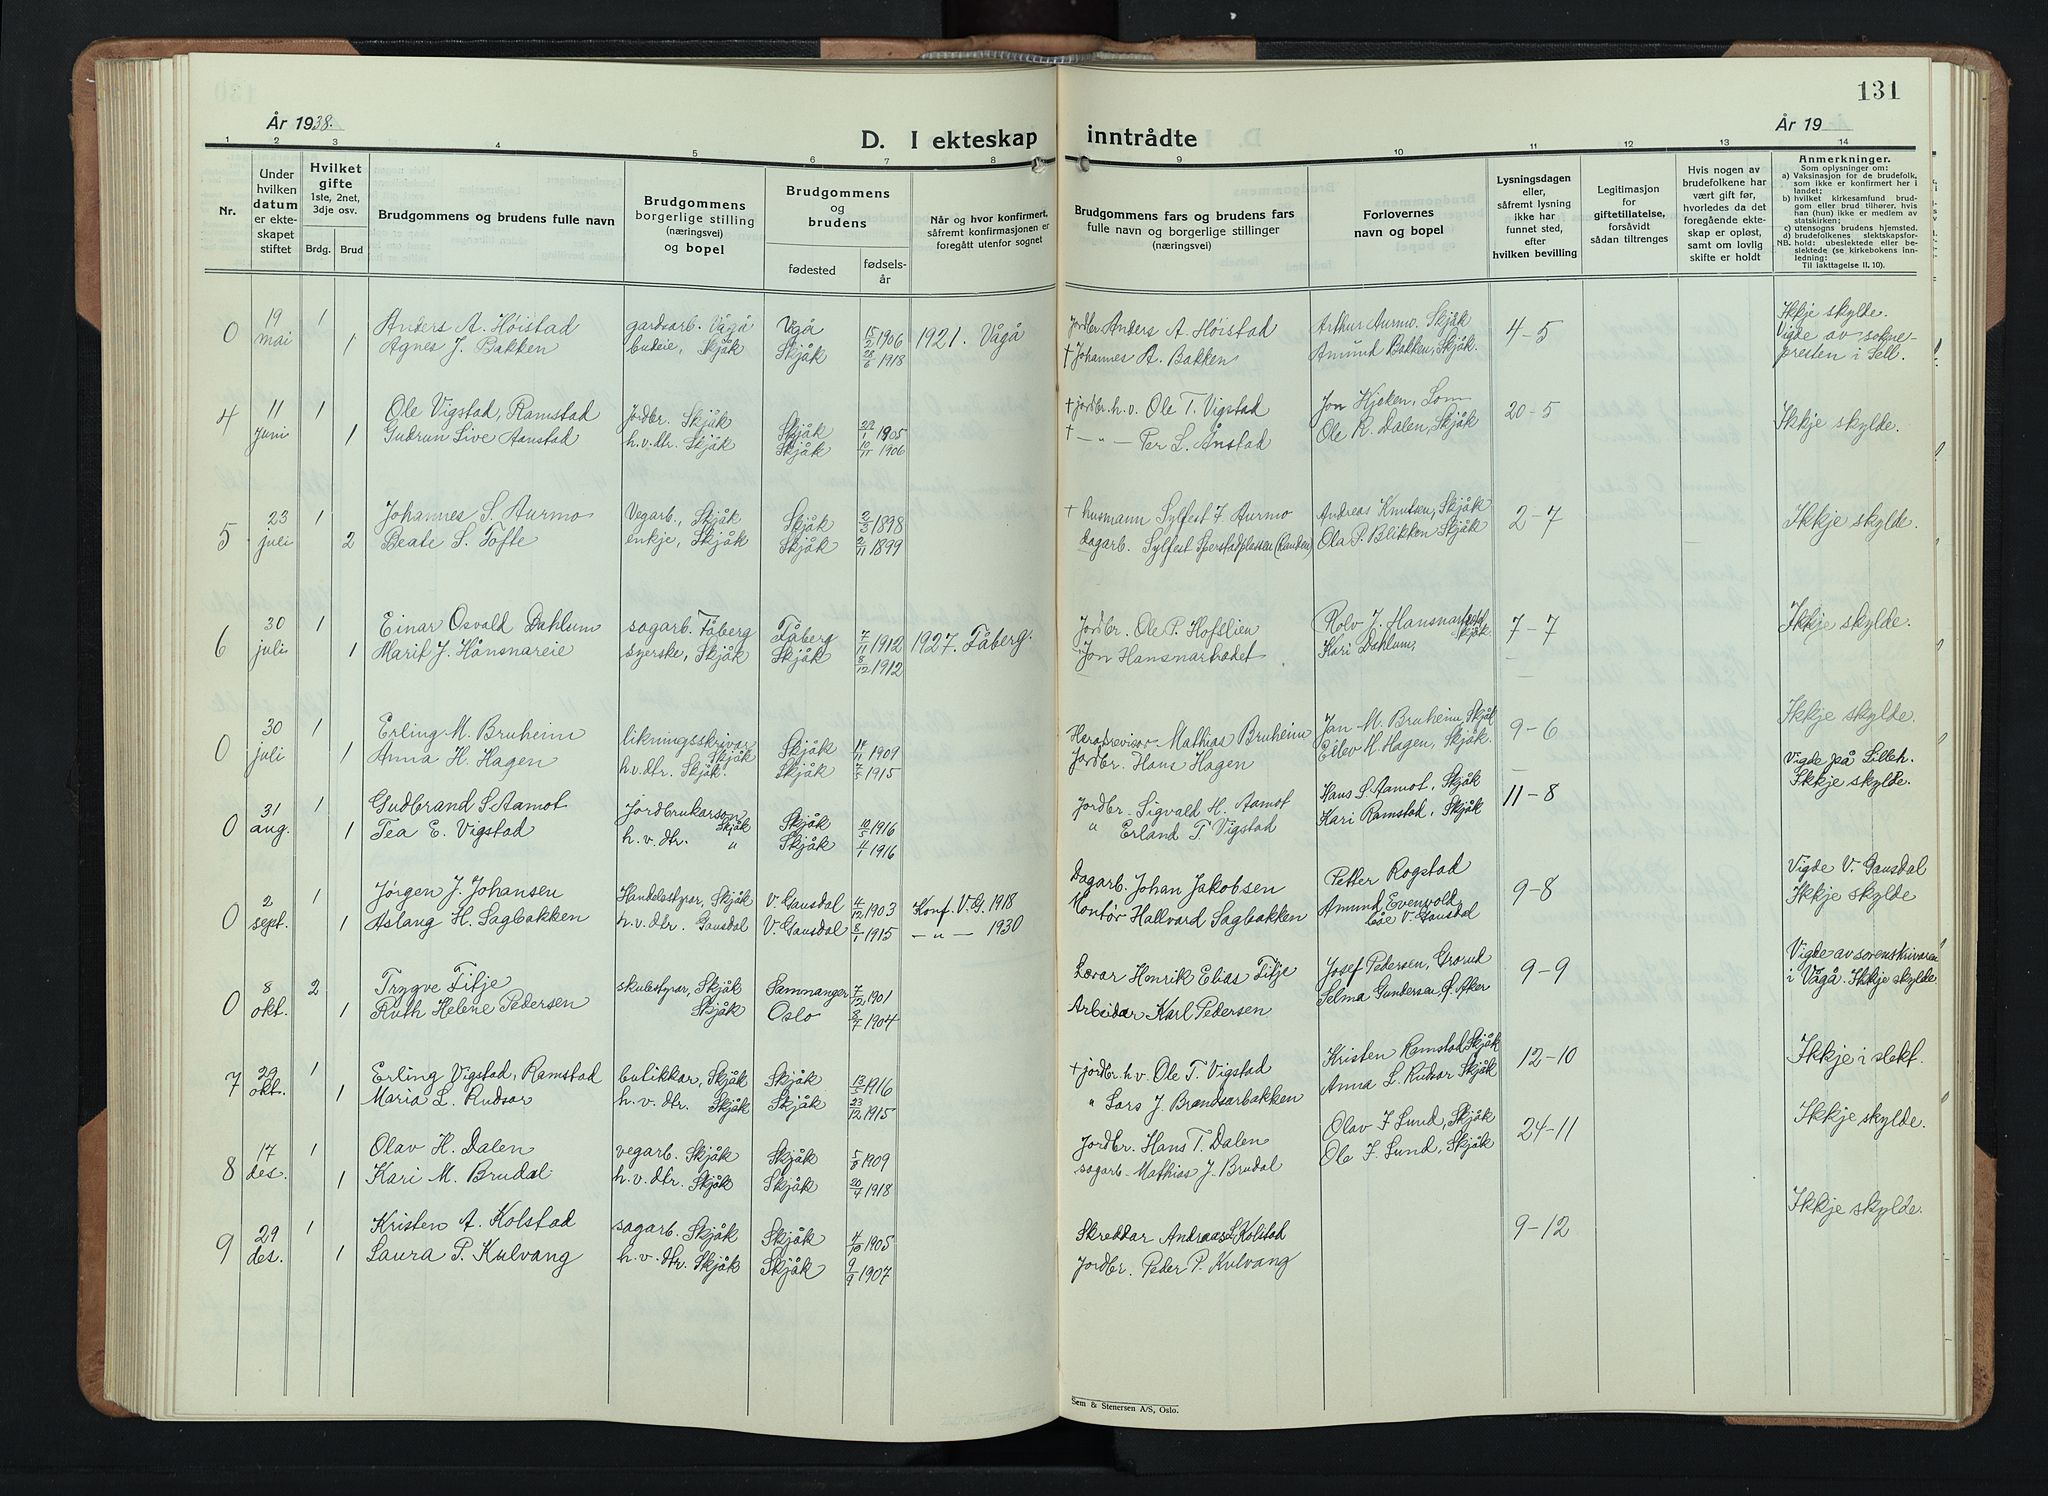 131
År 1938.
År 19
D. I ekteskap inntrådte
1 2 3 4 5 6 7 8 9 10 11 12 13 14
Nr.
Under hvilken datum er ekteskapet stiftet
Hvilket gifte 1ste, 2net, 3dje osv.
Brdg. Brud
Brudgommens og brudens fulle navn
Brudgommens borgerlige stilling (næringsvei) og bopel
Brudgommens og brudens
fødested
fødselsår
Når og hvor konfirmert, såfremt konfirmasjonen er foregått utenfor sognet
Brudgommens fars og brudens fars fulle navn og borgerlige stillinger (næringsvei)
Forlovernes navn og bopel
Lysningsdagen eller, såfremt lysning ikke har funnet sted, efter hvilken bevilling
Legitimasjon for giftetillatelse, forsåvidt sådan tiltrenges
Hvis nogen av brudefolkene har vært gift før, hvorledes da det foregående ekteskap er opløst, samt om lovlig skifte er holdt
Anmerkninger.
Som oplysninger om:
a) Vaksinasjon for de brudefolk, som ikke er konfirmert her i landet;
b) hvilket kirkesamfund brudgom eller brud tilhører, hvis han (hun) ikke er medlem av statskirken;
c) utensogns brudens hjemsted.
d) brudefolkenes slektskapsforhold: ubeslektede eller beslektede (se kirkebokens innledning:
NB.
Til iakttagelse II. 10).
0 19 mai 1 Anders A. Höistad gardsarb. Vågå Vågå 15/2 1906 1921. Vågå Jordbr. Anders A. Höistad Arthur Aurmo, Skjåk 4-5 Ikkje skylde.
1 Agnes J. Bakken budeie, Skjåk Skjåk 28/6 1918 † Johannes A. Bakken Amund Bakken, Skjåk. Vigde av sokne-
presten i Sell.
4 11 juni 1 Ole Vigstad, Ramstad jordbr. Skjåk Skjåk 29/1 1905 † jordbr. h.v. Ole T. Vigstad Jon Hjeken, Lom 20-5 Ikkje skylde.
1 Gudrun Live Aanstad h.v.dtr. Skjåk Skjåk 10/11 1906 † -"- Per L. Ånstad Ole R. Dalen, Skjåk
5 23 juli 1 Johannes S. Aurmo Vegarb., Skjåk Skjåk 2/3 1898 † husmann Sylfest J. Aurmo Andreas Knutsen, Skjåk 2-7 Ikkje skylde.
2 Beate S. Tofte enkje, Skjåk Skjåk 2/11 1899 dagarb. Sylfest Sperstadplassen (Randen) Ola P. Blikken Skjåk
6 30 juli 1 Einar Osvald Dahlum sagarb. Fåberg Fåberg 7/11 1912 1927. Fåberg. Jordbr. Ole P. Hofslien Rolv J. Hansnar Skjåk. 7-7 Ikkje skylde.
1 Marit J. Hånsnareie syerske, Skjåk Skjåk 8/12 1912 Jon Hansnartrædet Kari Dahlum,
0 30 juli 1 Erling M. Bruheim likningsskrivar Skjåk Skjåk 17/11 1909 Heradsrevisor Mathias Bruheim Jan M. Bruheim, Skjåk 9-6 Ikkje skylde.
1 Anna H. Hagen h.v.dtr. Skjåk. Skjåk 7/5 1915 Jordbr. Hans Hagen Eilev H. Hagen, Skjåk. Vigde på Lilleh.
0 31 aug. 1 Gudbrand S. Aamot Jordbrukarson Skjåk Skjåk 10/5 1916 Jordbr. Sigvald H. Aamot Hans S. Aamot, Skjåk 11-8 Ikkje skylde.
1 Tea E. Vigstad h.v.dtr. " Skjåk 4/1 1916 " Erland T. Vigstad Kari Ramstad, Skjåk
0 2 sept. 1 Jörgen J. Johansen Handelsstyrar, Skjåk V. Gausdal 4/12 1903 Konf. V.G. 1918 Dagarb. Johan Jakobsen Petter Rogstad 9-8 Vigde V. Gausdal
1 Aslaug H. Sagbakken h.v.dtr. Gausdal V. Gausdal 8/1 1915 -"- 1930 Kontör Hallvard Sagbakken Amund Evenvold, V. Gausdal Ikkje skylde
0 8 okt. 2 Trygve Titje skulestyrar, Skjåk Samnanger 7/12 1901 Lærar Henrik Elias Titje Josef Pedersen, Grorud 9-9 Vigde av sorenskrivaren
1 Ruth Helene Pedersen Skjåk Oslo 8/7 1904 Arbeidar Karl Pedersen Selma Gundersen, Ø. Aker i Vågå. Ikkje skylde
7 29 okt. 1 Erling Vigstad, Ramstad butikkar, Skjåk Skjåk 13/5 1916 † jordbr. h.v. Ole T. Vigstad Kristen Ramstad Skjåk 12-10 Ikkje i slekt.
1 Maria L. Rudsar h.v.dtr. Skjåk Skjåk 23/12 1915 " Lars J. Brandsarbakken Anna L. Rudsar Skjåk
8 17 des. 1 Olav H. Dalen vegarb. Skjåk Skjåk 5/8 1909 Jordbr. Hans T. Dalen Olav F Lund, Skjåk 24-11 Ikkje skylde.
1 Kari M. Brudal h.v.dtr. Skjåk Skjåk 20/4 1918 sagarb. Mathias J. Brudal Ole F. Lund, Skjåk
9 29 des. 1 Kristen A. Kolstad sagarb. Skjåk Skjåk 4/10 1905 Skreddar Andreas L Kolstad 9-12 Ikkje skylde.
1 Laura P. Kulvang h.v.dtr. Skjåk Skjåk 9/9 1907 Jordbr. Peder P. Kulvang
Sem & Stenersen A/S, Oslo.